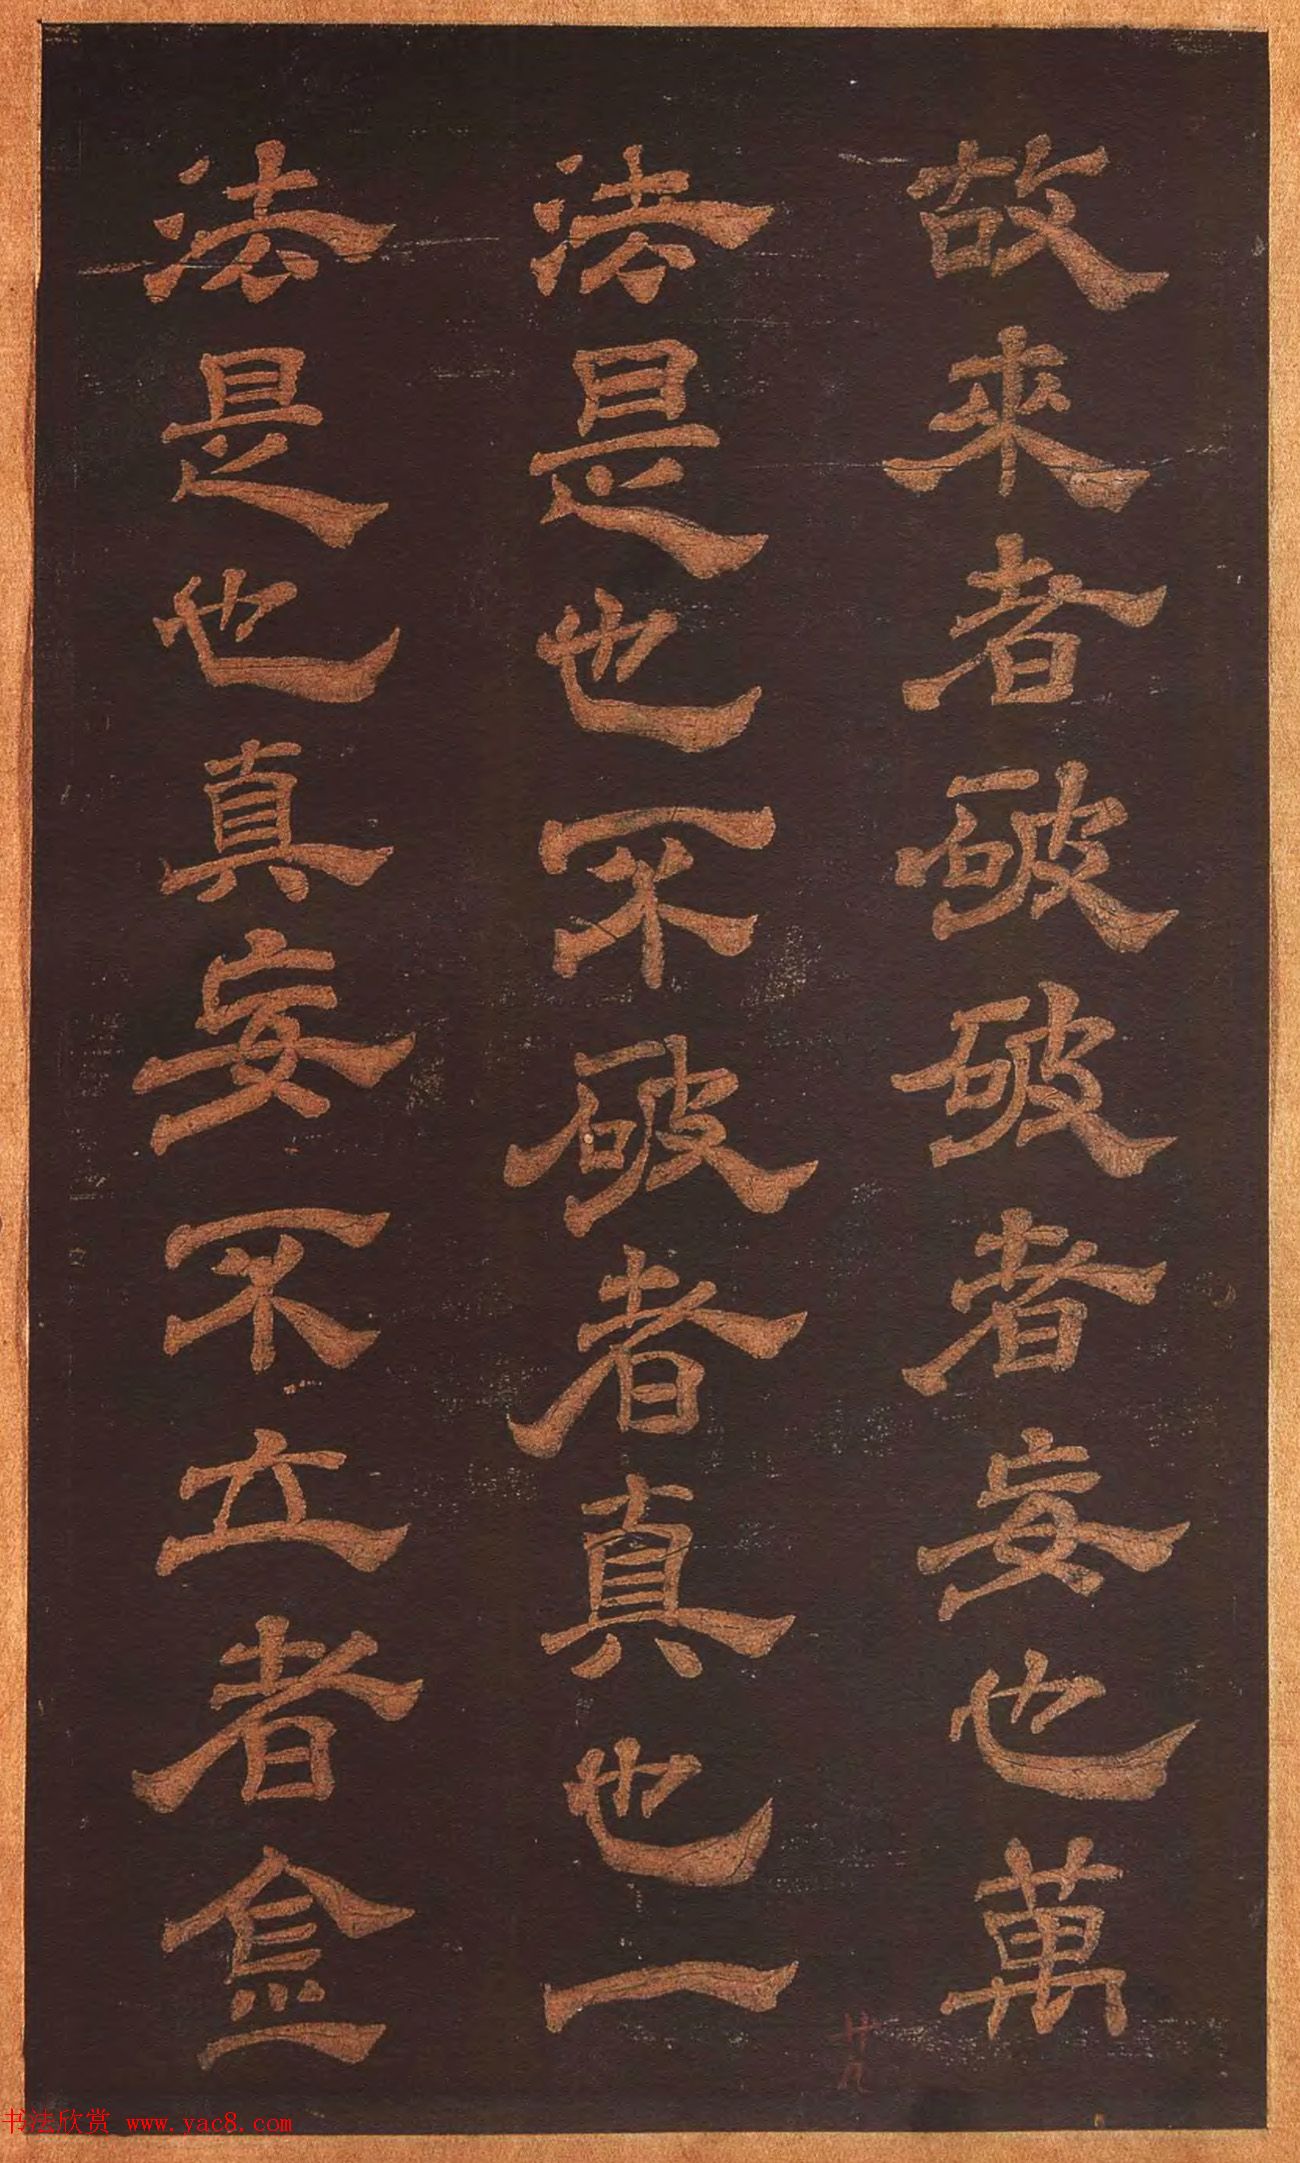 故來者破破者妄也萬
法是也不破者真也一
法是也真妄不立者
廿九
书法欣赏 www.yac8.com